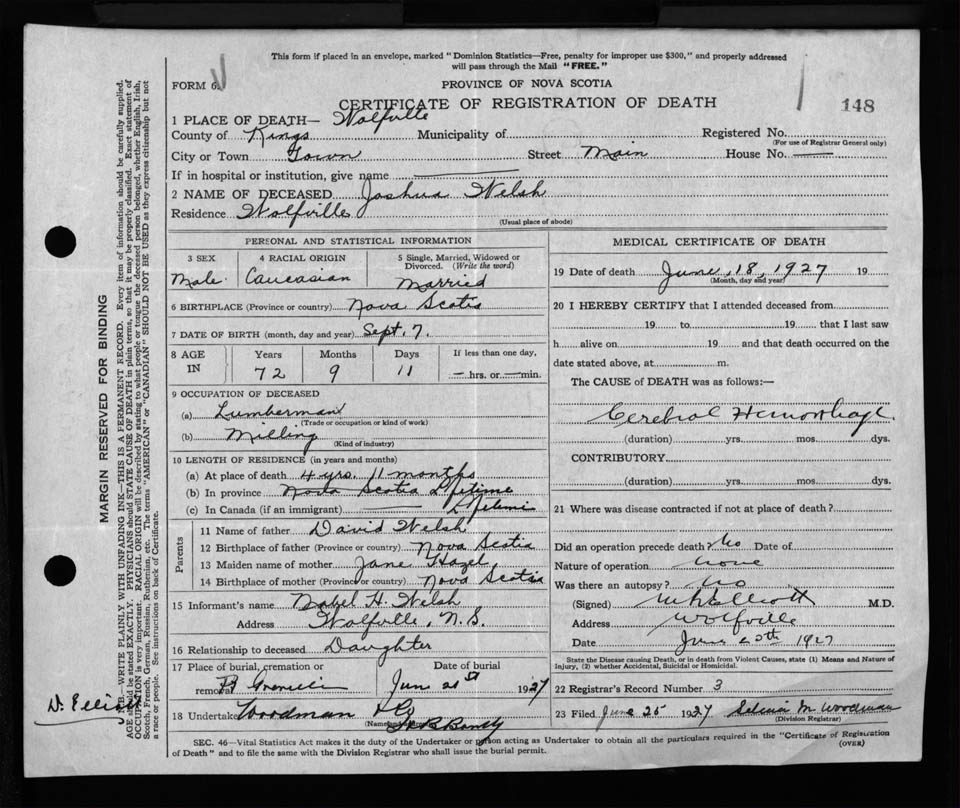 This form if placed in an envelope, marked "Dominion Statistics—Free, penalty for improper use $300," and properly addressed
will pass through the Mail "FREE."
FORM 6.
PROVINCE OF NOVA SCOTIA
CERTIFICATE OF REGISTRATION OF DEATH
148
1 PLACE OF DEATH— Wolfville
County of Kings Municipality of Registered No.
(For use of Registrar General only)
City or Town Town Street Main House No. —
If in hospital or institution, give name —
2 NAME OF DECEASED Joshua Welsh
Residence Wolfville
(Usual place of abode)
PERSONAL AND STATISTICAL INFORMATION
3 SEX 4 RACIAL ORIGIN 5 Single, Married, Widowed or
Divorced. (Write the word)
Male. Caucasian Married
6 BIRTHPLACE (Province or country) Nova Scotia
7 DATE OF BIRTH (month, day and year) Sept. 7.
8 AGE IN Years Months Days If less than one day,
72 9 11 — hrs. or — min.
9 OCCUPATION OF DECEASED
(a) Lumberman
(Trade or occupation or kind of work)
(b) Milling
(Kind of industry)
10 LENGTH OF RESIDENCE (in years and months)
(a) At place of death 4 yrs. 11 months
(b) In province Nova Scotia Lifetime
(c) In Canada (if an immigrant) — Lifetime
Parents
11 Name of father David Welsh
12 Birthplace of father (Province or country) Nova Scotia
13 Maiden name of mother Jane Hazel
14 Birthplace of mother (Province or country) Nova Scotia
15 Informant's name Mabel H. Welsh
Address Wolfville, N.S.
16 Relationship to deceased Daughter
17 Place of burial, cremation or Date of burial
removal Jun 21st 1927
18 Undertaker Woodman
MEDICAL CERTIFICATE OF DEATH
19 Date of death June, 18, 1927 19
(Month, day and year)
20 I HEREBY CERTIFY that I attended deceased from
19 to 19 that I last saw
h alive on 19 and that death occurred on the
date stated above, at m.
The CAUSE of DEATH was as follows:—
Cerebral Hemorrhage.
(duration) yrs. mos. dys.
CONTRIBUTORY
(duration) yrs. mos. dys.
21 Where was disease contracted if not at place of death?
Did an operation precede death? No Date of
Nature of operation None
Was there an autopsy? No
(Signed) Elliott M.D.
Address Wolfville
Date June 20th 1927
State the Disease causing Death, or in death from Violent Causes, state (1) Means and Nature of
Injury, (2) whether Accidental, Suicidal or Homicidal.
22 Registrar's Record Number 3
23 Filed June 25 1927 M. Woodman
(Division Registrar)
SEC. 46—Vital Statistics Act makes it the duty of the Undertaker or person acting as Undertaker to obtain all the particulars required in the "Certificate of Registration
of Death" and to file the same with the Division Registrar who shall issue the burial permit.
(OVER)
MARGIN RESERVED FOR BINDING
N.B.—WRITE PLAINLY WITH UNFADING INK—THIS IS A PERMANENT RECORD. Every item of information should be carefully supplied.
AGE should be stated EXACTLY. PHYSICIANS should STATE CAUSE OF DEATH in plain terms, so that it may be properly classified. Exact statement of
OCCUPATION is very important. RACIAL ORIGIN will be described by stating to what people or tongue the deceased person belonged, whether English, Irish,
Scotch, French, German, Russian, Ruthenian, etc. The terms "AMERICAN" or "CANADIAN" SHOULD NOT BE USED as they express citizenship but not
a race or people. See instructions on back of Certificate.